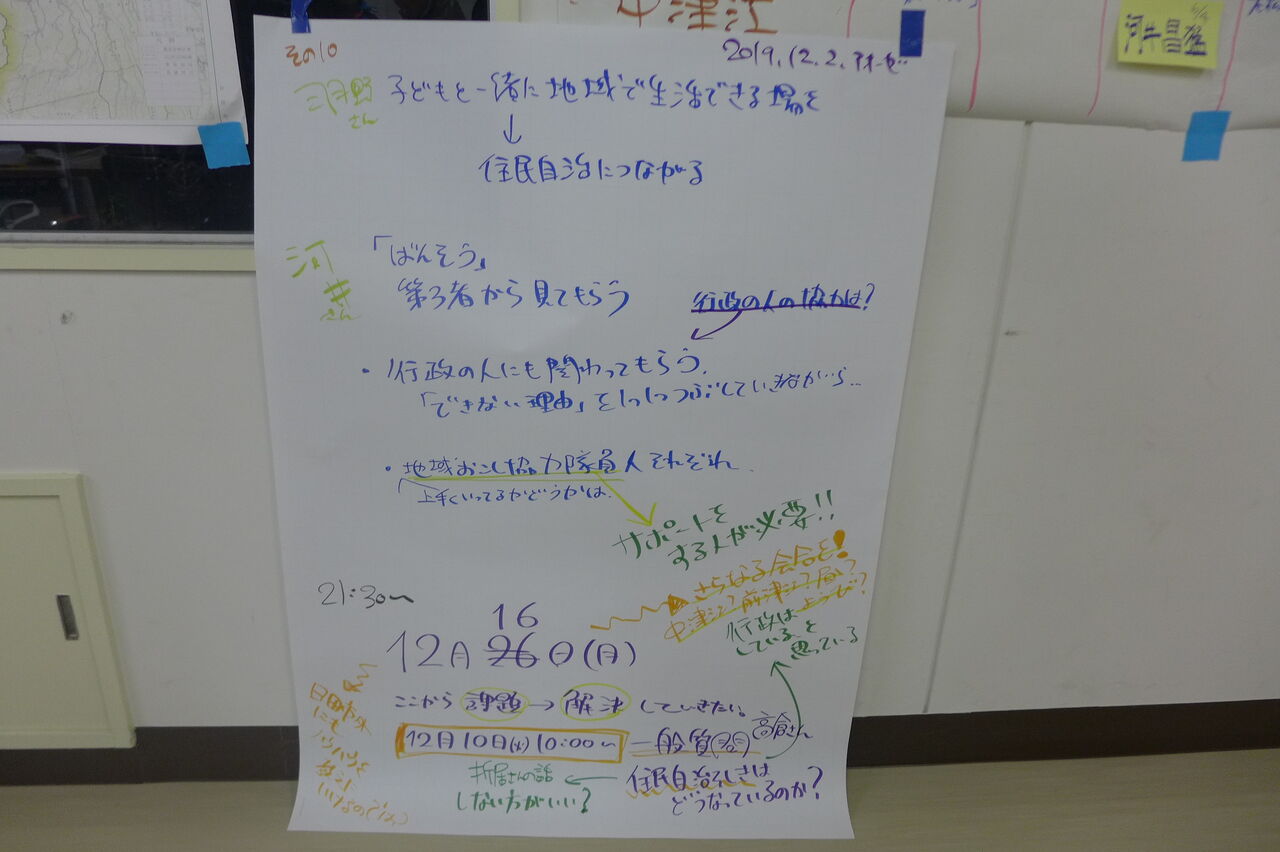 中津江
河井昌雄
その10
2019.12.2.
さん
子どもと一緒に地域で生活できる場を
↓
住民自治につながる
河井さん
「ばんそう」
第3者から見てもらう
行政の人の協力は?
・行政の人にも関わってもらう.
「できない理由」を1つ1つつぶしていきながら…
・地域おこし協力隊員人それぞれ.
上手くいってるかどうかは.
サポートを
する人が必要!!
さらなる会合を!
中津江?前津江?局?
行政は
していると
思っている
21:30〜
16
12月26日(月)
ここから課題→解決していきたい。
12月10日(火)10:00〜 一般質問 高倉さん
住民自治組しきは
どうなっているのか?
さんの話
しない方がいい?
日田市外
にも
ノウハウを